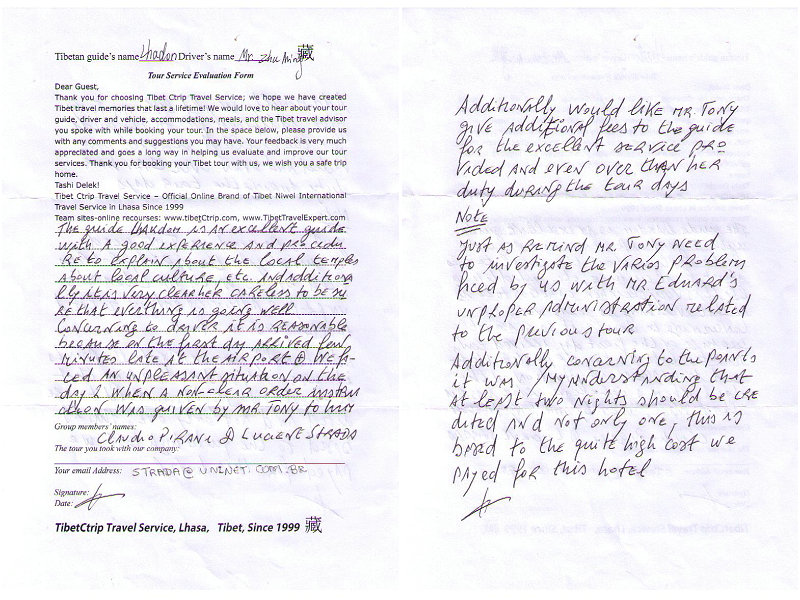 Tibetan guide's name Lhadon Driver's name Mr. Zhu Ming 藏
Tour Service Evaluation Form
Dear Guest,
Thank you for choosing Tibet Ctrip Travel Service; we hope we have created
Tibet travel memories that last a lifetime! We would love to hear about your tour
guide, driver and vehicle, accommodations, meals, and the Tibet travel advisor
you spoke with while booking your tour. In the space below, please provide us
with any comments and suggestions you may have. Your feedback is very much
appreciated and goes a long way in helping us evaluate and improve our tour
services. Thank you for booking your Tibet tour with us, we wish you a safe trip
home.
Tashi Delek!
Tibet Ctrip Travel Service – Official Online Brand of Tibet Niwei International
Travel Service in Lhasa Since 1999
Team sites-online recourses: www.tibetCtrip.com, www.TibetTravelExpert.com
The guide Lhakdon is an excellent guide
with a good experience and procedu
re to explain about the local temples
about local culture, etc. and additiona
lly it as very clear her careless to be su
re that everthing is going well
Concerning to driver it is reasonable
because on the first day arrived few
minutes late at the airport We fa-
ced an unpleasant situation on the
day 2 when a non-clear order instru
ction was guiven by Mr Tony to him
Group members' names:
Claudio Pirani & Luciene Strada
The tour you took with our company:
Your email Address: STRADA@UNINET.COM.BR
Signature:
Date:
TibetCtrip Travel Service, Lhasa, Tibet, Since 1999 藏
Additionally would like Mr. Tony
give additional fees to the guide
for the excellent service pro
vided and even over than her
duty during the tour days
Note
Just as remind Mr. Tony need
to investigate the varios problems
faced by us with Mr Eduard's
unproper administration related
to the previous tour
Additionally concerning to the points
it was my understanding that
at least two nights should be cre
dited and not only one, this is
based to the quite high cost we
payed for this hotel